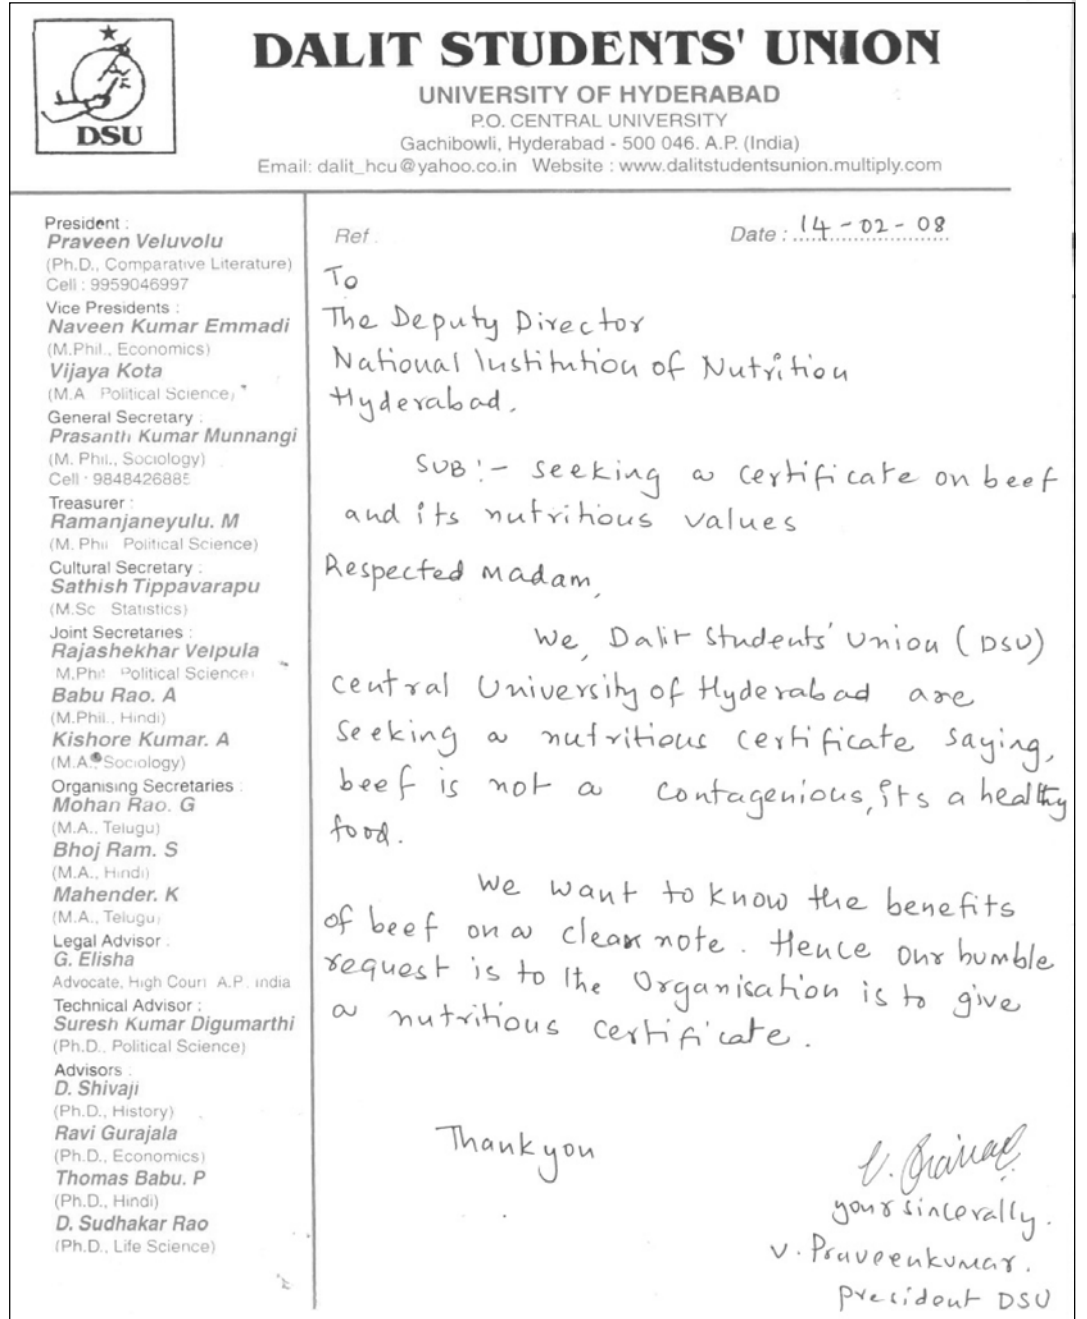 DSU
DALIT STUDENTS' UNION
UNIVERSITY OF HYDERABAD
P.O. CENTRAL UNIVERSITY
Gachibowli, Hyderabad - 500 046. A.P. (India)
Email: dalit_hcu@yahoo.co.in Website : www.dalitstudentsunion.multiply.com
President :
Praveen Veluvolu
(Ph.D., Comparative Literature)
Cell : 9959046997
Vice Presidents :
Naveen Kumar Emmadi
(M.Phil., Economics)
Vijaya Kota
(M.A. Political Science)
General Secretary :
Prasanth Kumar Munnangi
(M. Phil., Sociology)
Cell : 9848426885
Treasurer :
Ramanjaneyulu. M
(M. Phil Political Science)
Cultural Secretary :
Sathish Tippavarapu
(M.Sc Statistics)
Joint Secretaries :
Rajashekhar Velpula
M.Phil Political Science)
Babu Rao. A
(M.Phil., Hindi)
Kishore Kumar. A
(M.A., Sociology)
Organising Secretaries :
Mohan Rao. G
(M.A., Telugu)
Bhoj Ram. S
(M.A., Hindi)
Mahender. K
(M.A., Telugu)
Legal Advisor :
G. Elisha
Advocate, High Court A.P. India
Technical Advisor :
Suresh Kumar Digumarthi
(Ph.D., Political Science)
Advisors :
D. Shivaji
(Ph.D., History)
Ravi Gurajala
(Ph.D., Economics)
Thomas Babu. P
(Ph.D., Hindi)
D. Sudhakar Rao
(Ph.D., Life Science)
Ref.
Date : 14-02-08
To
The Deputy Director
National Institution of Nutrition
Hyderabad.
SUB:- seeking a certificate on beef
and its nutritious values
Respected madam,
We, Dalit Students' Union (DSU)
central University of Hyderabad are
seeking a nutritious certificate saying,
beef is not a contagenious, its a healthy
food.
We want to know the benefits
of beef on a clear note. Hence our humble
request is to the Organisation is to give
a nutritious certificate.
Thank you
your sincerally.
V. Praveenkumar.
president DSU